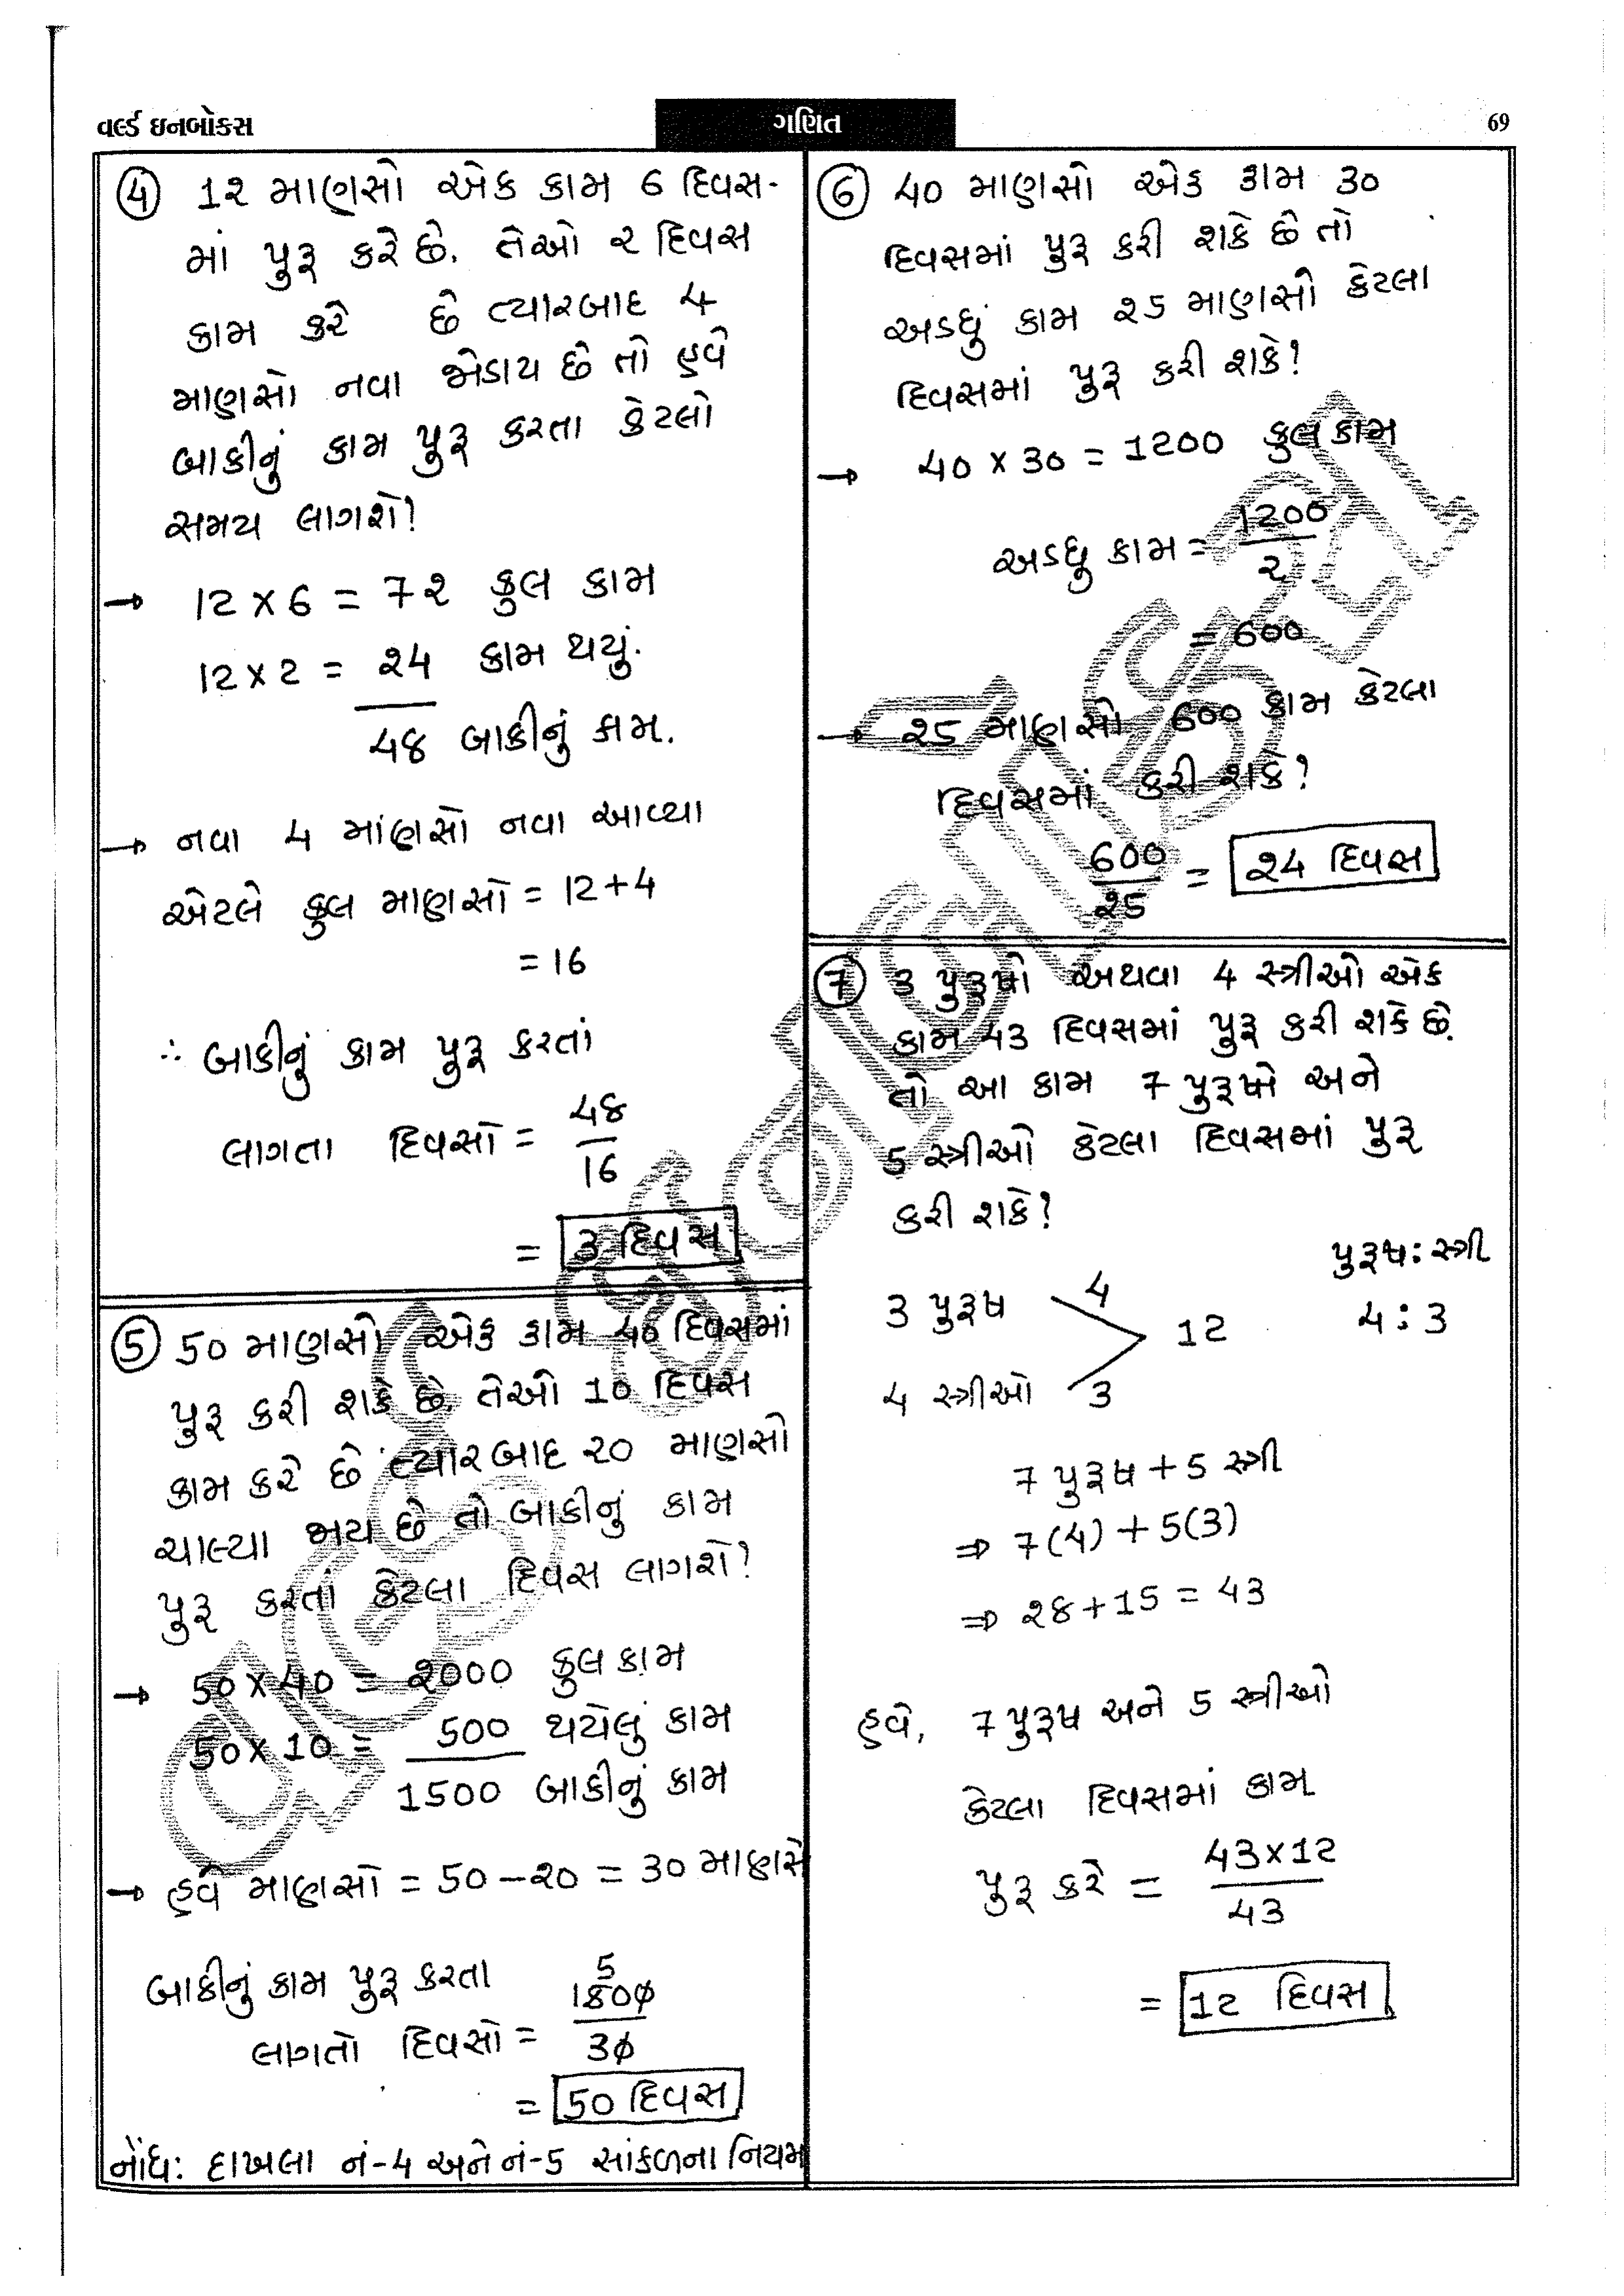 વર્લ્ડ ઇનબોકસ
ગણિત
69
④ 1૨ માણસો એક કામ 6 દિવસ-
માં પુરૂ કરે છે. તેઓ ૨ દિવસ
કામ કરે છે ત્યારબાદ 4
માણસો નવા જોડાય છે તો હવે
બાકીનું કામ પુરૂ કરતા કેટલો
સમય લાગશે?
→ 12 x 6 = 7૨ કુલ કામ
12 x 2 = ૨4 કામ થયું.
48 બાકીનું કામ.
→ નવા 4 માંણસો નવા આવ્યા
એટલે કુલ માણસો = 12 + 4
= 16
∴ બાકીનું કામ પુરૂ કરતાં
લાગતા દિવસો = 48
16
= 3 દિવસ
⑤ 50 માણસો એક કામ 40 દિવસમાં
પુરૂ કરી શકે છે. તેઓ 10 દિવસ
કામ કરે છે ત્યારબાદ ૨0 માણસો
ચાલ્યા જાય છે તો બાકીનું કામ
પુરૂ કરતાં કેટલા દિવસ લાગશે?
→ 50 x 40 = ૨000 કુલ કામ
50 x 10 = 500 થયેલું કામ
1500 બાકીનું કામ
→ હવે માણસો = 50 - ૨0 = 30 માણસો
બાકીનું કામ પુરૂ કરતા 5
1500
લાગતો દિવસો = 30
= 50 દિવસ
નોંધ: દાખલા નં-4 અને નં-5 સાંકળના નિયમ
⑥ 40 માણસો એક કામ 30
દિવસમાં પુરૂ કરી શકે છે તો
અડધું કામ ૨5 માણસો કેટલા
દિવસમાં પુરૂ કરી શકે?
→ 40 x 30 = 1200 કુલ કામ
અડધુ કામ = 1200
૨
= 600
→ ૨5 માણસો 600 કામ કેટલા
દિવસમાં કરી શકે?
600
૨5 = ૨4 દિવસ
⑦ 3 પુરૂષો અથવા 4 સ્ત્રીઓ એક
કામ 43 દિવસમાં પુરૂ કરી શકે છે.
તો આ કામ 7 પુરૂષો અને
5 સ્ત્રીઓ કેટલા દિવસમાં પુરૂ
કરી શકે?
પુરૂષ : સ્ત્રી
3 પુરૂષ 4
12
4 : 3
4 સ્ત્રીઓ 3
7 પુરૂષ + 5 સ્ત્રી
⇒ 7(4) + 5(3)
⇒ ૨8 + 15 = 43
હવે, 7 પુરૂષ અને 5 સ્ત્રીઓ
કેટલા દિવસમાં કામ
પુરૂ કરે = 43 x 12
43
= 12 દિવસ